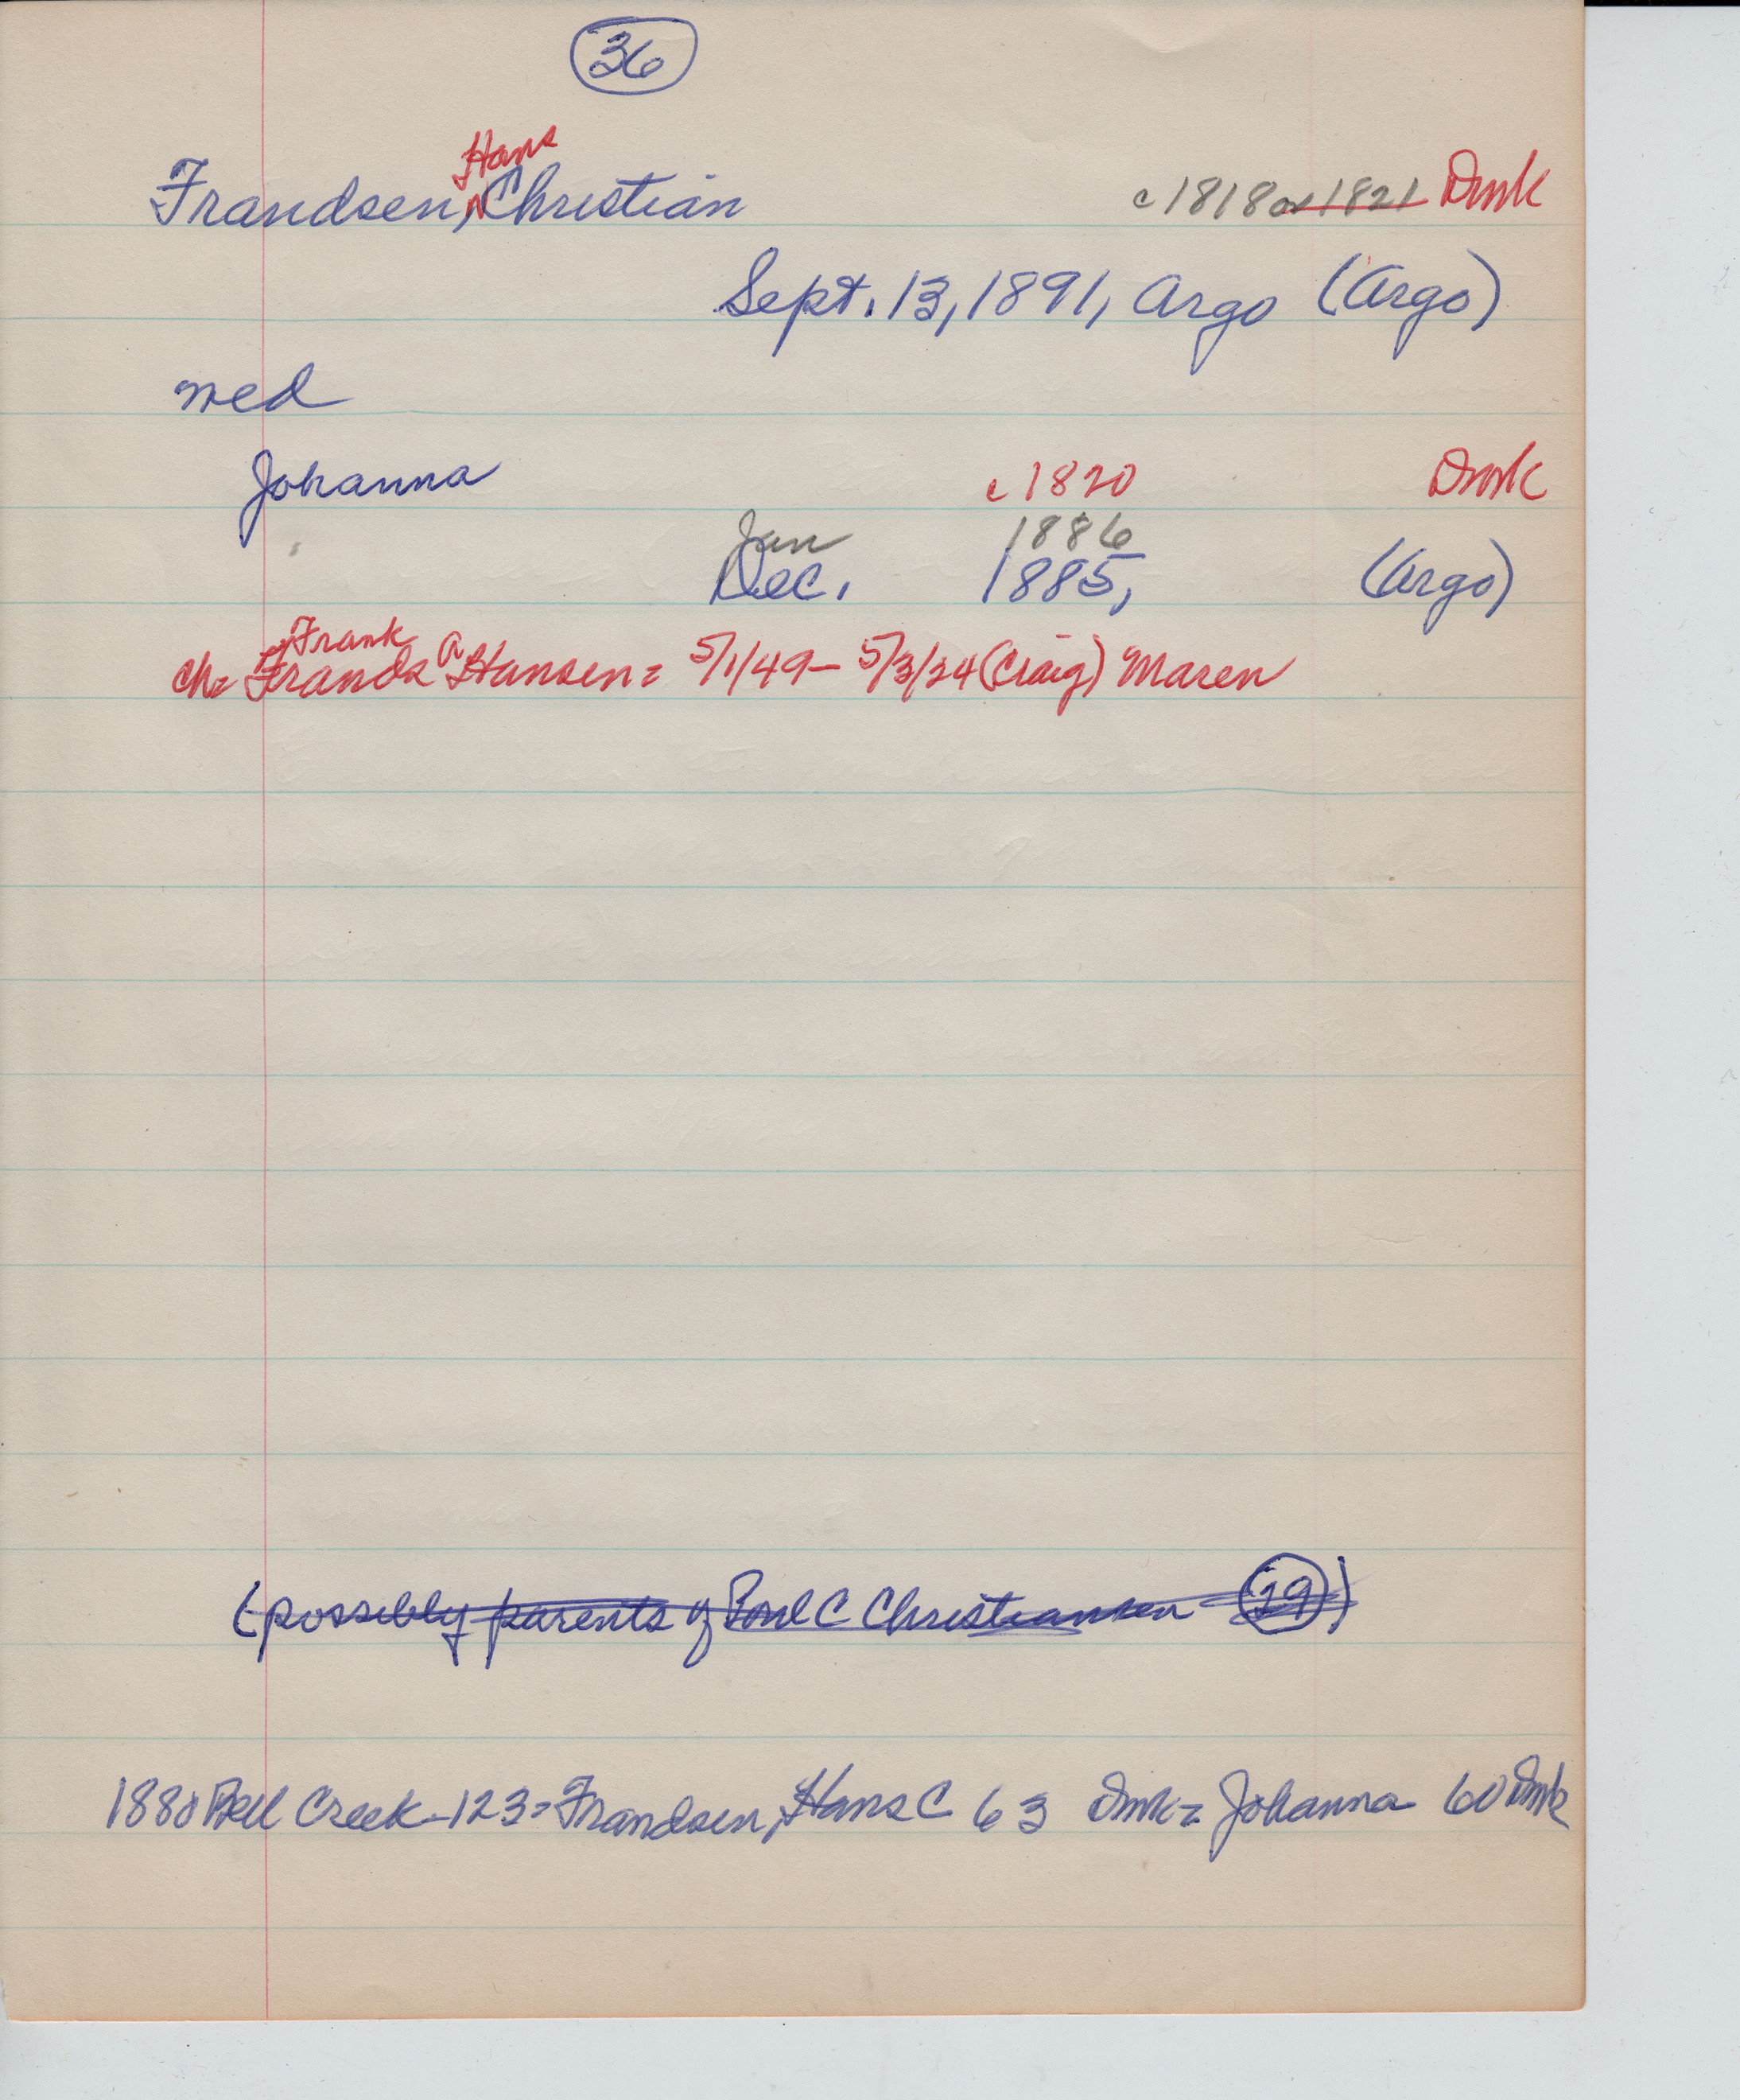 36
Frandsen, Hans Christian c 1818 or 1821 Dmk
Sept. 13, 1891, Argo (Argo)
med
Johanna c 1820 Dmk
Jan 1886
Dec. 1885, (Argo)
Frank
ch= Frands A Hansen = 5/1/49 - 5/3/24 (Craig) Maren
(possibly parents of Poul C Christiansen - 29)
1880 Bell Creek - 123 = Frandsen, Hans C 63 Dmk = Johanna 60 Dmk